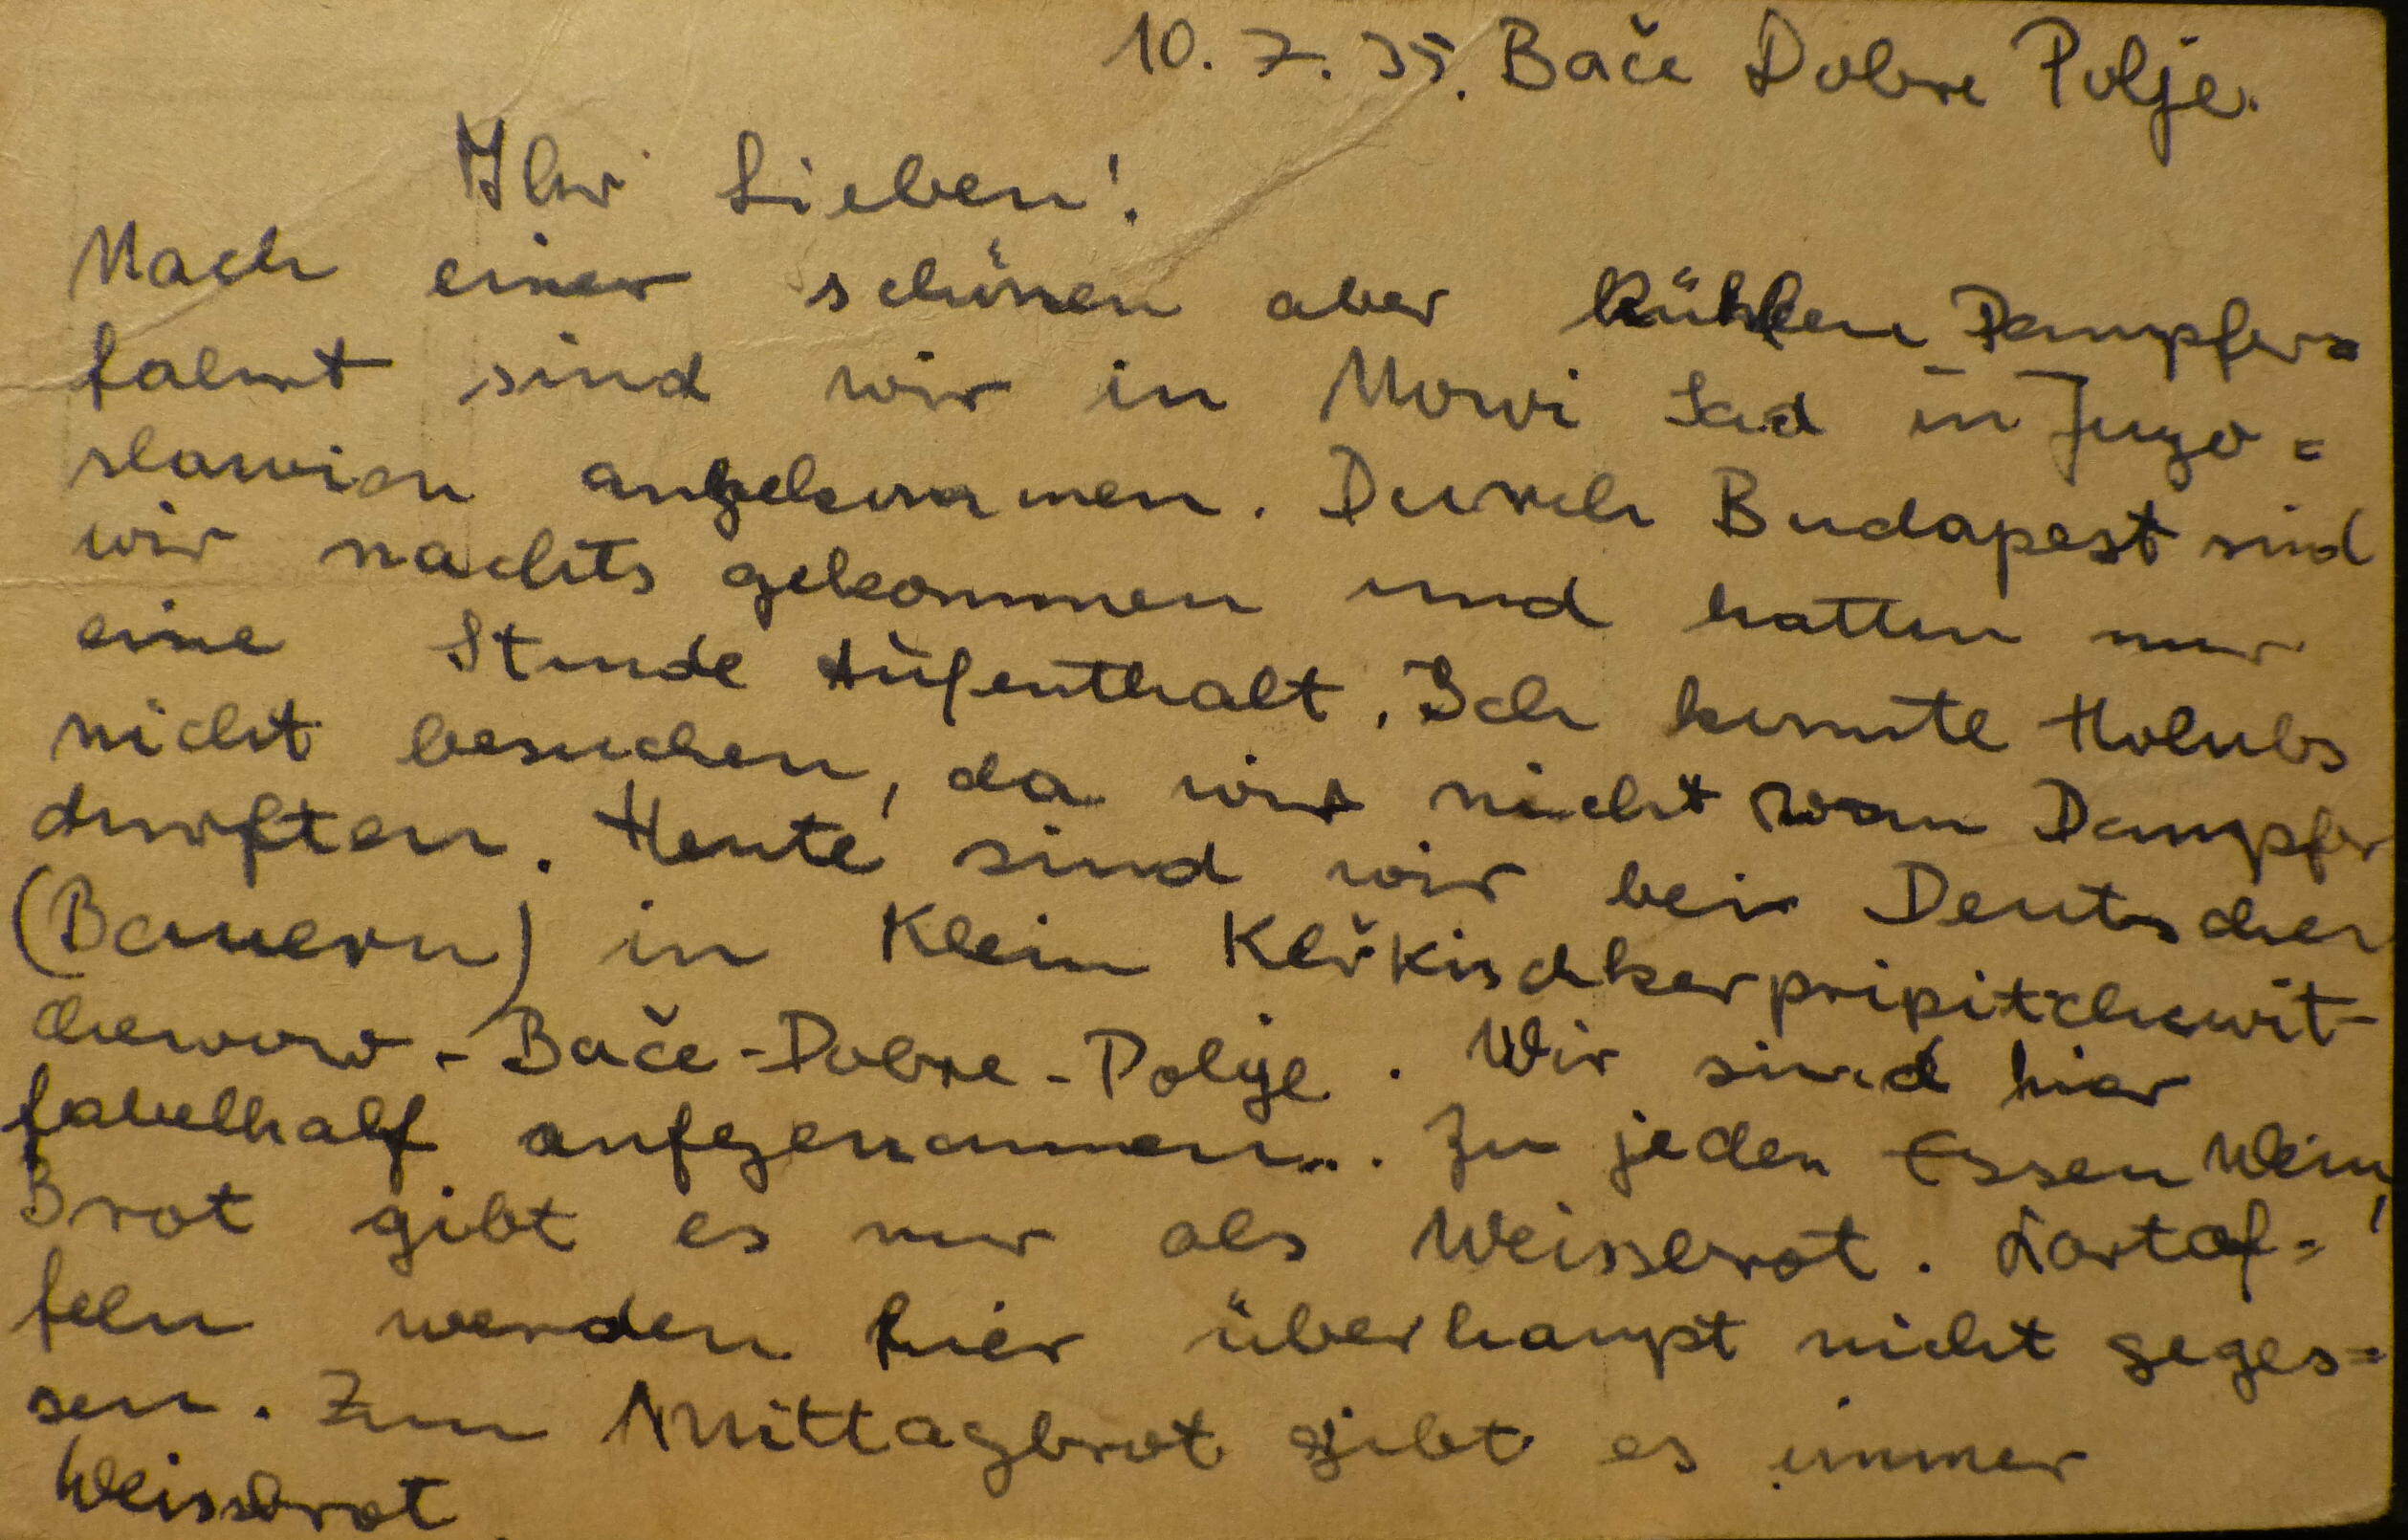 10. 7. 35. Bače Dobre Polje.
Ihr Lieben!
Nach einer schönen aber kühlen Dampfer=
fahrt sind wir in Nowi Sad in Jugo=
slawien angekommen. Durch Budapest sind
wir nachts gekommen und hatten nur
eine Stunde Aufenthalt. Ich konnte Holubs
nicht besuchen, da wir nicht vom Dampfer
durften. Heute sind wir bei Deutschen
(Bauern) in Klein
- Bače-Dobre-Polje. Wir sind hier
fabelhaft aufgenommen... Zu jeden Essen Wein,
Brot gibt es nur als Weissbrot. Kartof=
feln werden hier überhaupt nicht geges=
sen. Zum Mittagbrot gibt es immer
Weissbrot.